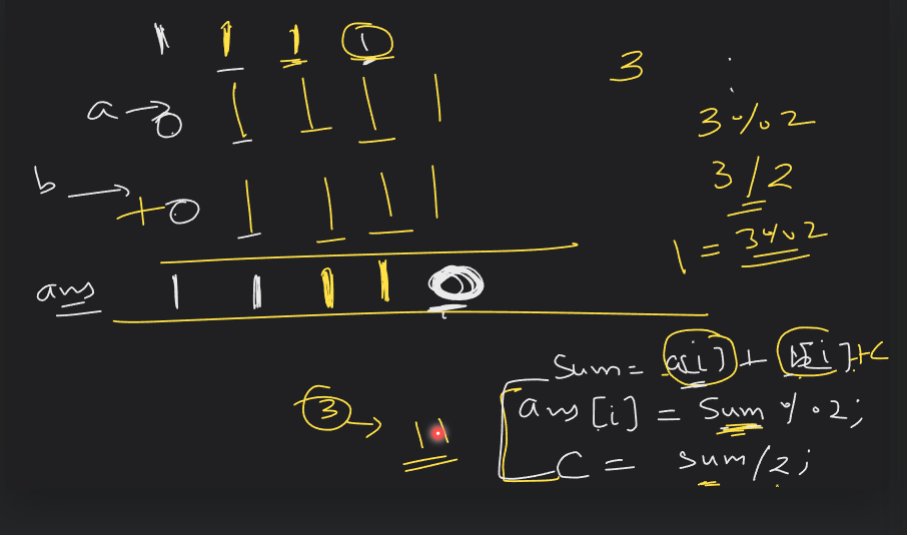 1 1 1 1
a → 0 1 1 1 1
b → + 0 1 1 1 1
ans 1 1 1 1 0
3
3 % 2
3 / 2
1 = 3 % 2
Sum = a[i] + b[i] + C
ans [i] = Sum % 2;
C = sum/2;
3 → 11